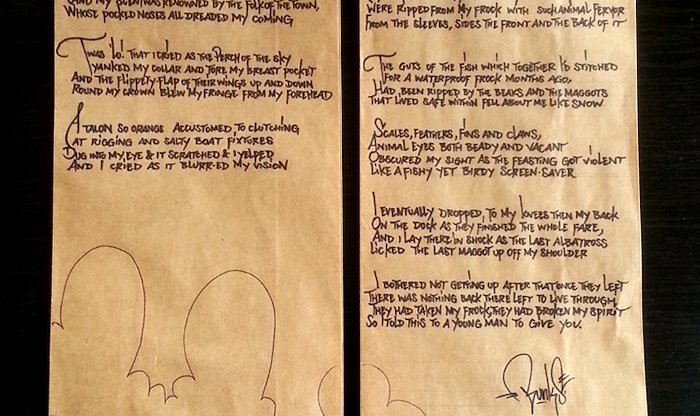 AND MY SCENT WAS RENOWNED BY THE FOLK OF THE TOWN,
WHOSE POCKED NOSES ALL DREADED MY COMING
TWAS 'LO! THAT I CRIED AS THE PERCH OF THE SKY
YANKED MY COLLAR AND TORE MY BREAST POCKET
AND THE FLIPPETY-FLAP OF THEIR WINGS UP AND DOWN
ROUND MY CROWN BLEW MY FRINGE FROM MY FOREHEAD
A TALON SO ORANGE ACCUSTOMED, TO CLUTCHING
AT RIGGING AND SALTY BOAT FIXTURES
DUG INTO MY, EYE & IT SCRATCHED & I YELPED
AND I CRIED AS IT BLURR-ED MY VISION
WERE RIPPED FROM MY FROCK WITH SUCH ANIMAL FERVOR
FROM THE SLEEVES, SIDES THE FRONT AND THE BACK OF IT
THE GUTS OF THE FISH WHICH TOGETHER I'D STITCHED
FOR A WATERPROOF FROCK MONTHS AGO,
HAD BEEN RIPPED BY THE BEAKS AND THE MAGGOTS
THAT LIVED SAFE WITHIN FELL ABOUT ME LIKE SNOW
SCALES, FEATHERS, FINS AND CLAWS,
ANIMAL EYES BOTH BEADY AND VACANT
OBSCURED MY SIGHT AS THE FEASTING GOT VIOLENT
LIKE A FISHY YET BIRDY SCREEN-SAVER
I EVENTUALLY DROPPED, TO MY KNEES THEN MY BACK
ON THE DOCK AS THEY FINISHED THE WHOLE FARE,
AND I LAY THERE IN SHOCK AS THE LAST ALBATROSS
LICKED THE LAST MAGGOT UP OFF MY SHOULDER
I BOTHERED NOT GETTING UP AFTER THAT ONCE THEY LEFT
THERE WAS NOTHING BACK THERE LEFT TO LIVE THROUGH,
THEY HAD TAKEN MY FROCK, THEY HAD BROKEN MY SPIRIT
SO I TOLD THIS TO A YOUNG MAN TO GIVE YOU.